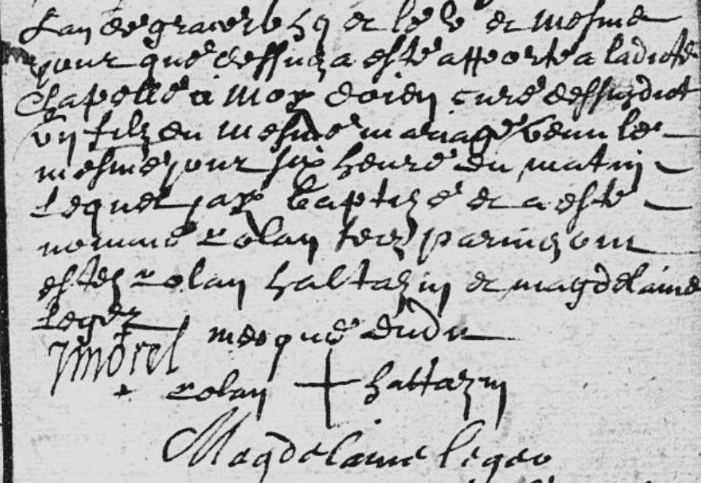 Lan de grace et le et mesme
jour que dessus a esté apporté a ladicte
chapelle a moy doien curé dessusdict
un filz du mesme mariage venu le
mesme jour six heure du matin
lequel jay baptizé et a esté
nommé Colan ses parins ont
estez Colan haltazin et magdelaine
leger
Jmorel merque dudit
Colan + haltazin
Magdelaine leger